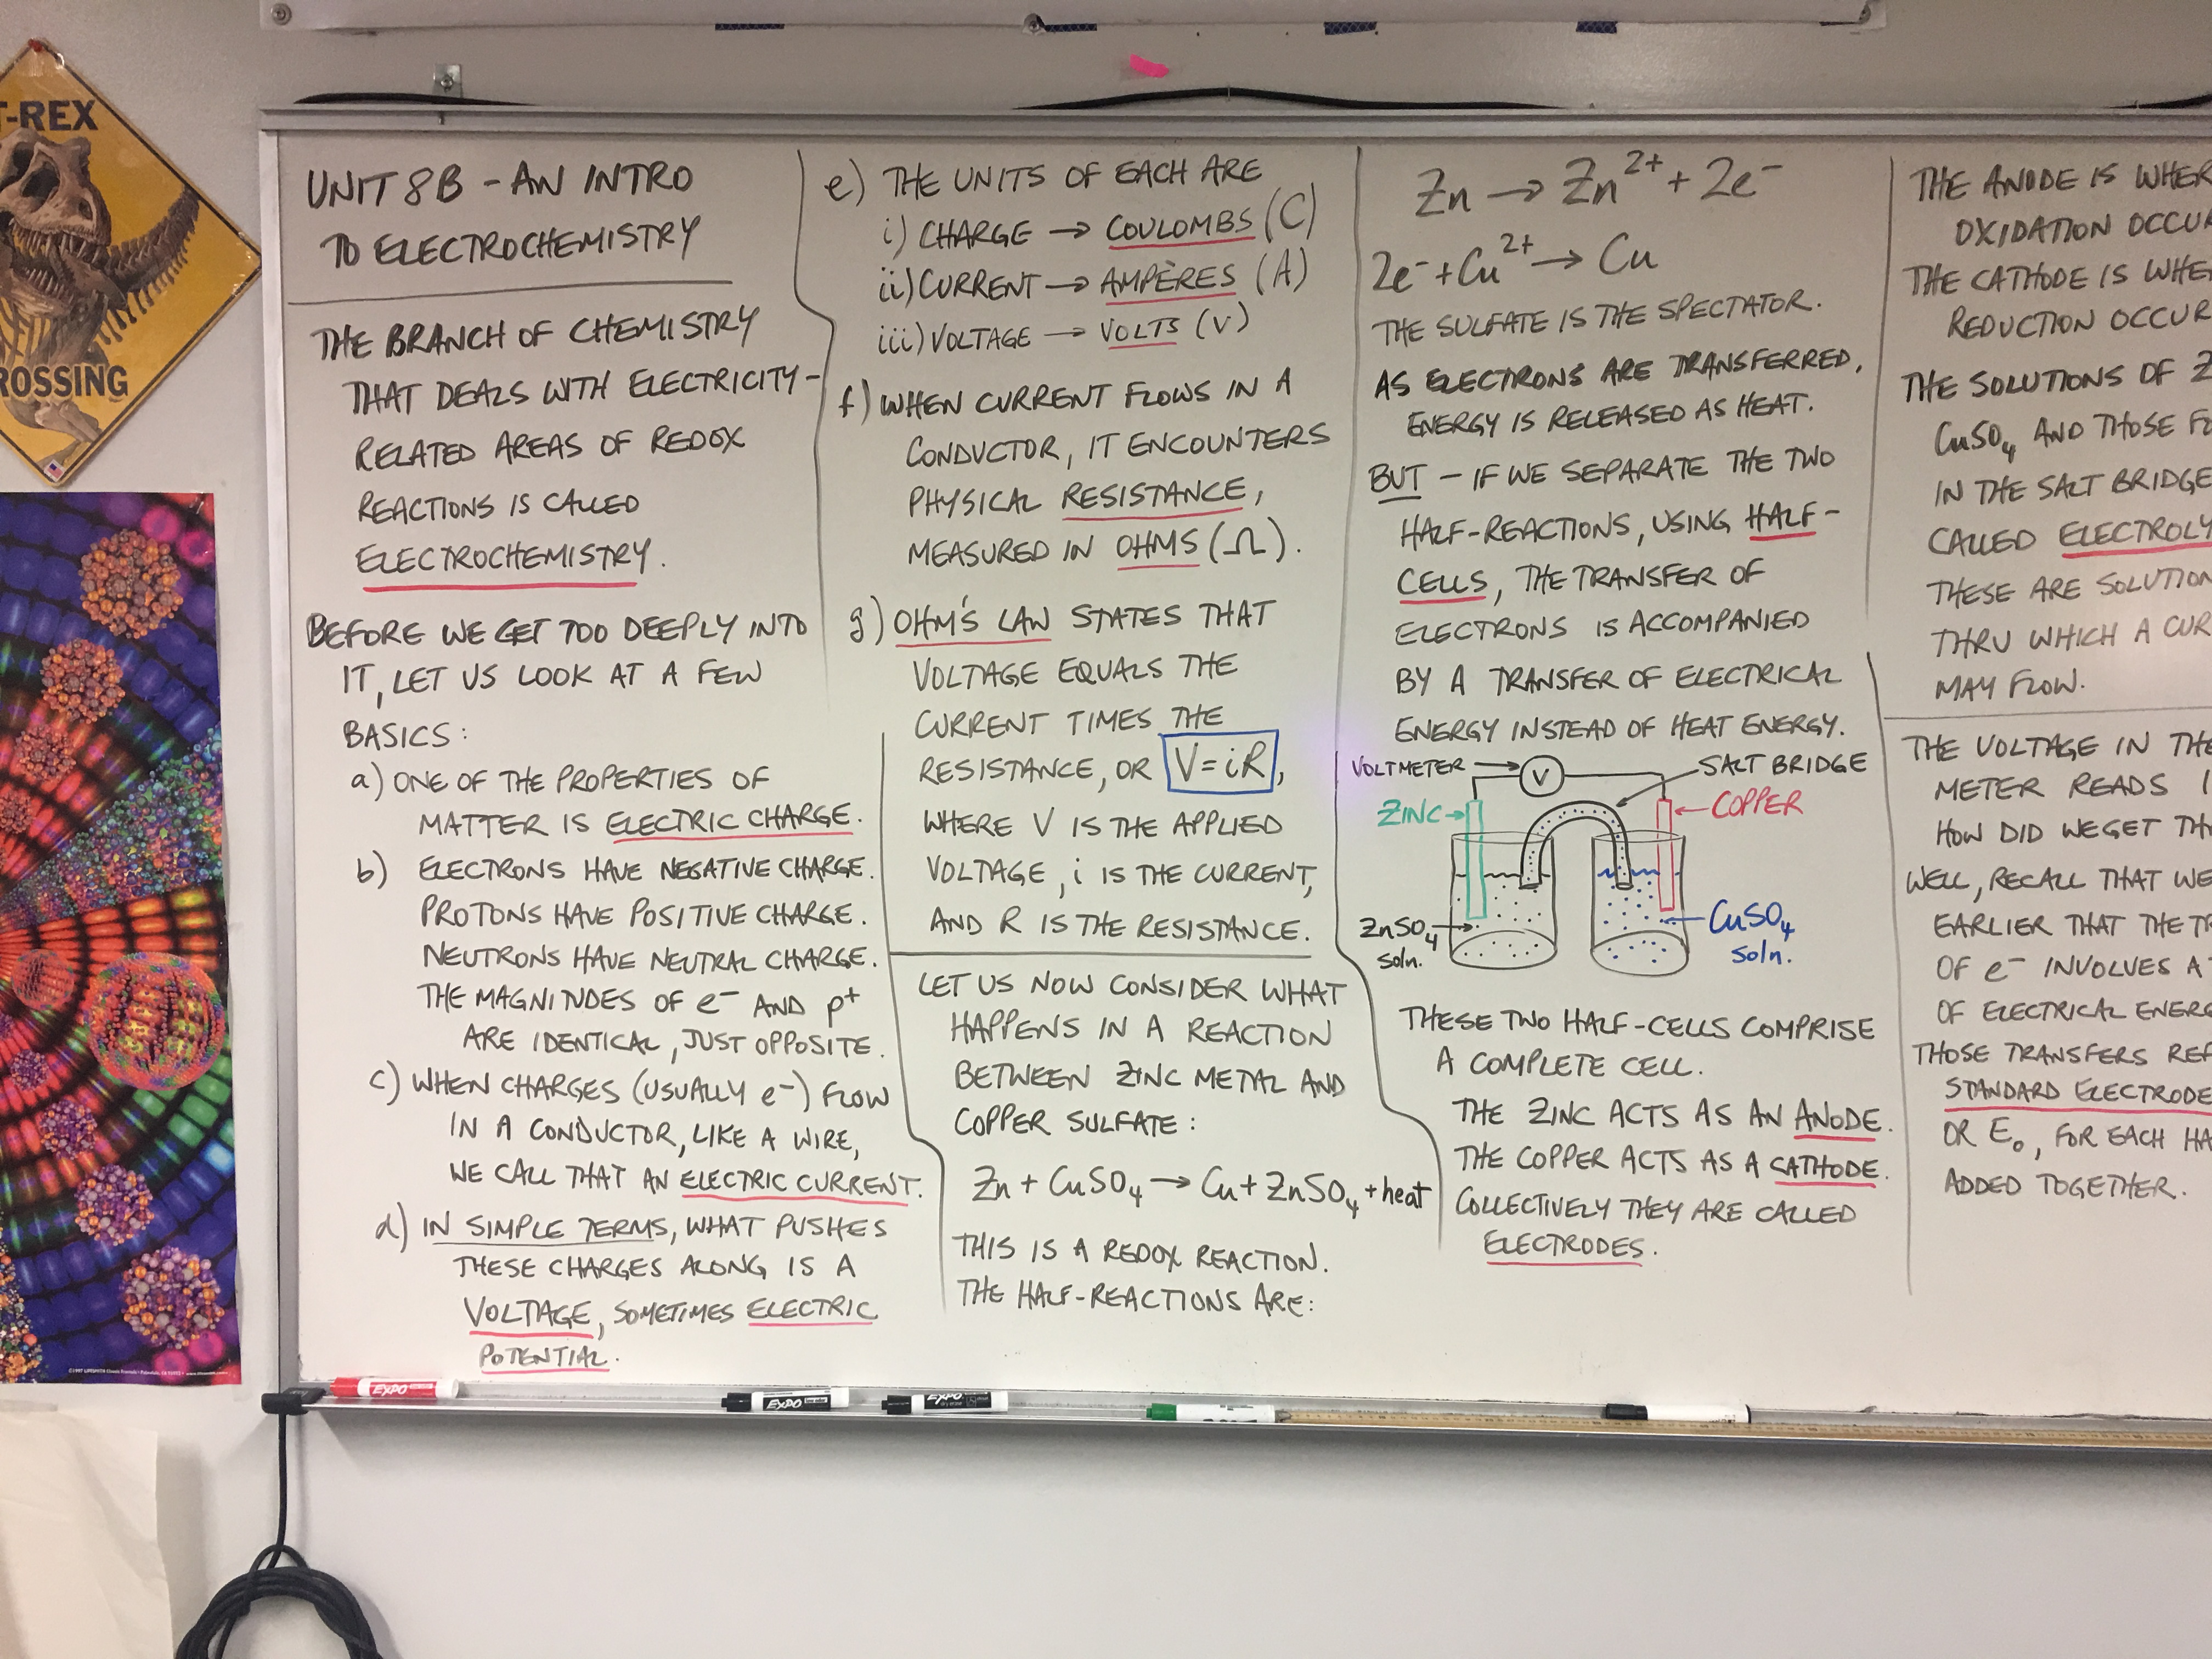 T-REX
ROSSING
UNIT 8B - AN INTRO
TO ELECTROCHEMISTRY
THE BRANCH OF CHEMISTRY
THAT DEALS WITH ELECTRICITY-
RELATED AREAS OF REDOX
REACTIONS IS CALLED
ELECTROCHEMISTRY.
BEFORE WE GET TOO DEEPLY INTO
IT, LET US LOOK AT A FEW
BASICS:
a) ONE OF THE PROPERTIES OF
MATTER IS ELECTRIC CHARGE.
b) ELECTRONS HAVE NEGATIVE CHARGE.
PROTONS HAVE POSITIVE CHARGE.
NEUTRONS HAVE NEUTRAL CHARGE.
THE MAGNITUDES OF e⁻ AND p⁺
ARE IDENTICAL, JUST OPPOSITE.
c) WHEN CHARGES (USUALLY e⁻) FLOW
IN A CONDUCTOR, LIKE A WIRE,
WE CALL THAT AN ELECTRIC CURRENT.
d) IN SIMPLE TERMS, WHAT PUSHES
THESE CHARGES ALONG IS A
VOLTAGE, SOMETIMES ELECTRIC
POTENTIAL.
e) THE UNITS OF EACH ARE
i) CHARGE → COULOMBS (C)
ii) CURRENT → AMPÈRES (A)
iii) VOLTAGE → VOLTS (V)
f) WHEN CURRENT FLOWS IN A
CONDUCTOR, IT ENCOUNTERS
PHYSICAL RESISTANCE,
MEASURED IN OHMS (Ω).
g) OHM'S LAW STATES THAT
VOLTAGE EQUALS THE
CURRENT TIMES THE
RESISTANCE, OR V = iR,
WHERE V IS THE APPLIED
VOLTAGE, i IS THE CURRENT,
AND R IS THE RESISTANCE.
LET US NOW CONSIDER WHAT
HAPPENS IN A REACTION
BETWEEN ZINC METAL AND
COPPER SULFATE:
Zn + CuSO₄ → Cu + ZnSO₄ + heat
THIS IS A REDOX REACTION.
THE HALF-REACTIONS ARE:
Zn → Zn²⁺ + 2e⁻
2e⁻ + Cu²⁺ → Cu
THE SULFATE IS THE SPECTATOR.
AS ELECTRONS ARE TRANSFERRED,
ENERGY IS RELEASED AS HEAT.
BUT - IF WE SEPARATE THE TWO
HALF-REACTIONS, USING HALF-
CELLS, THE TRANSFER OF
ELECTRONS IS ACCOMPANIED
BY A TRANSFER OF ELECTRICAL
ENERGY INSTEAD OF HEAT ENERGY.
VOLTMETER → V SALT BRIDGE
ZINC → ← COPPER
ZnSO₄ soln. CuSO₄ soln.
THESE TWO HALF-CELLS COMPRISE
A COMPLETE CELL.
THE ZINC ACTS AS AN ANODE.
THE COPPER ACTS AS A CATHODE.
COLLECTIVELY THEY ARE CALLED
ELECTRODES.
THE ANODE IS WHER
OXIDATION OCCUR
THE CATHODE IS WHE
REDUCTION OCCUR
THE SOLUTIONS OF Z
CuSO₄ AND THOSE FO
IN THE SALT BRIDGE
CALLED ELECTROLY
THESE ARE SOLUTION
THRU WHICH A CUR
MAY FLOW.
THE VOLTAGE IN THE
METER READS 1
HOW DID WE GET TH
WELL, RECALL THAT WE
EARLIER THAT THE TR
OF e⁻ INVOLVES A T
OF ELECTRICAL ENERG
THOSE TRANSFERS REF
STANDARD ELECTRODE
OR E₀, FOR EACH HA
ADDED TOGETHER.
EXPO
EXPO
EXPO